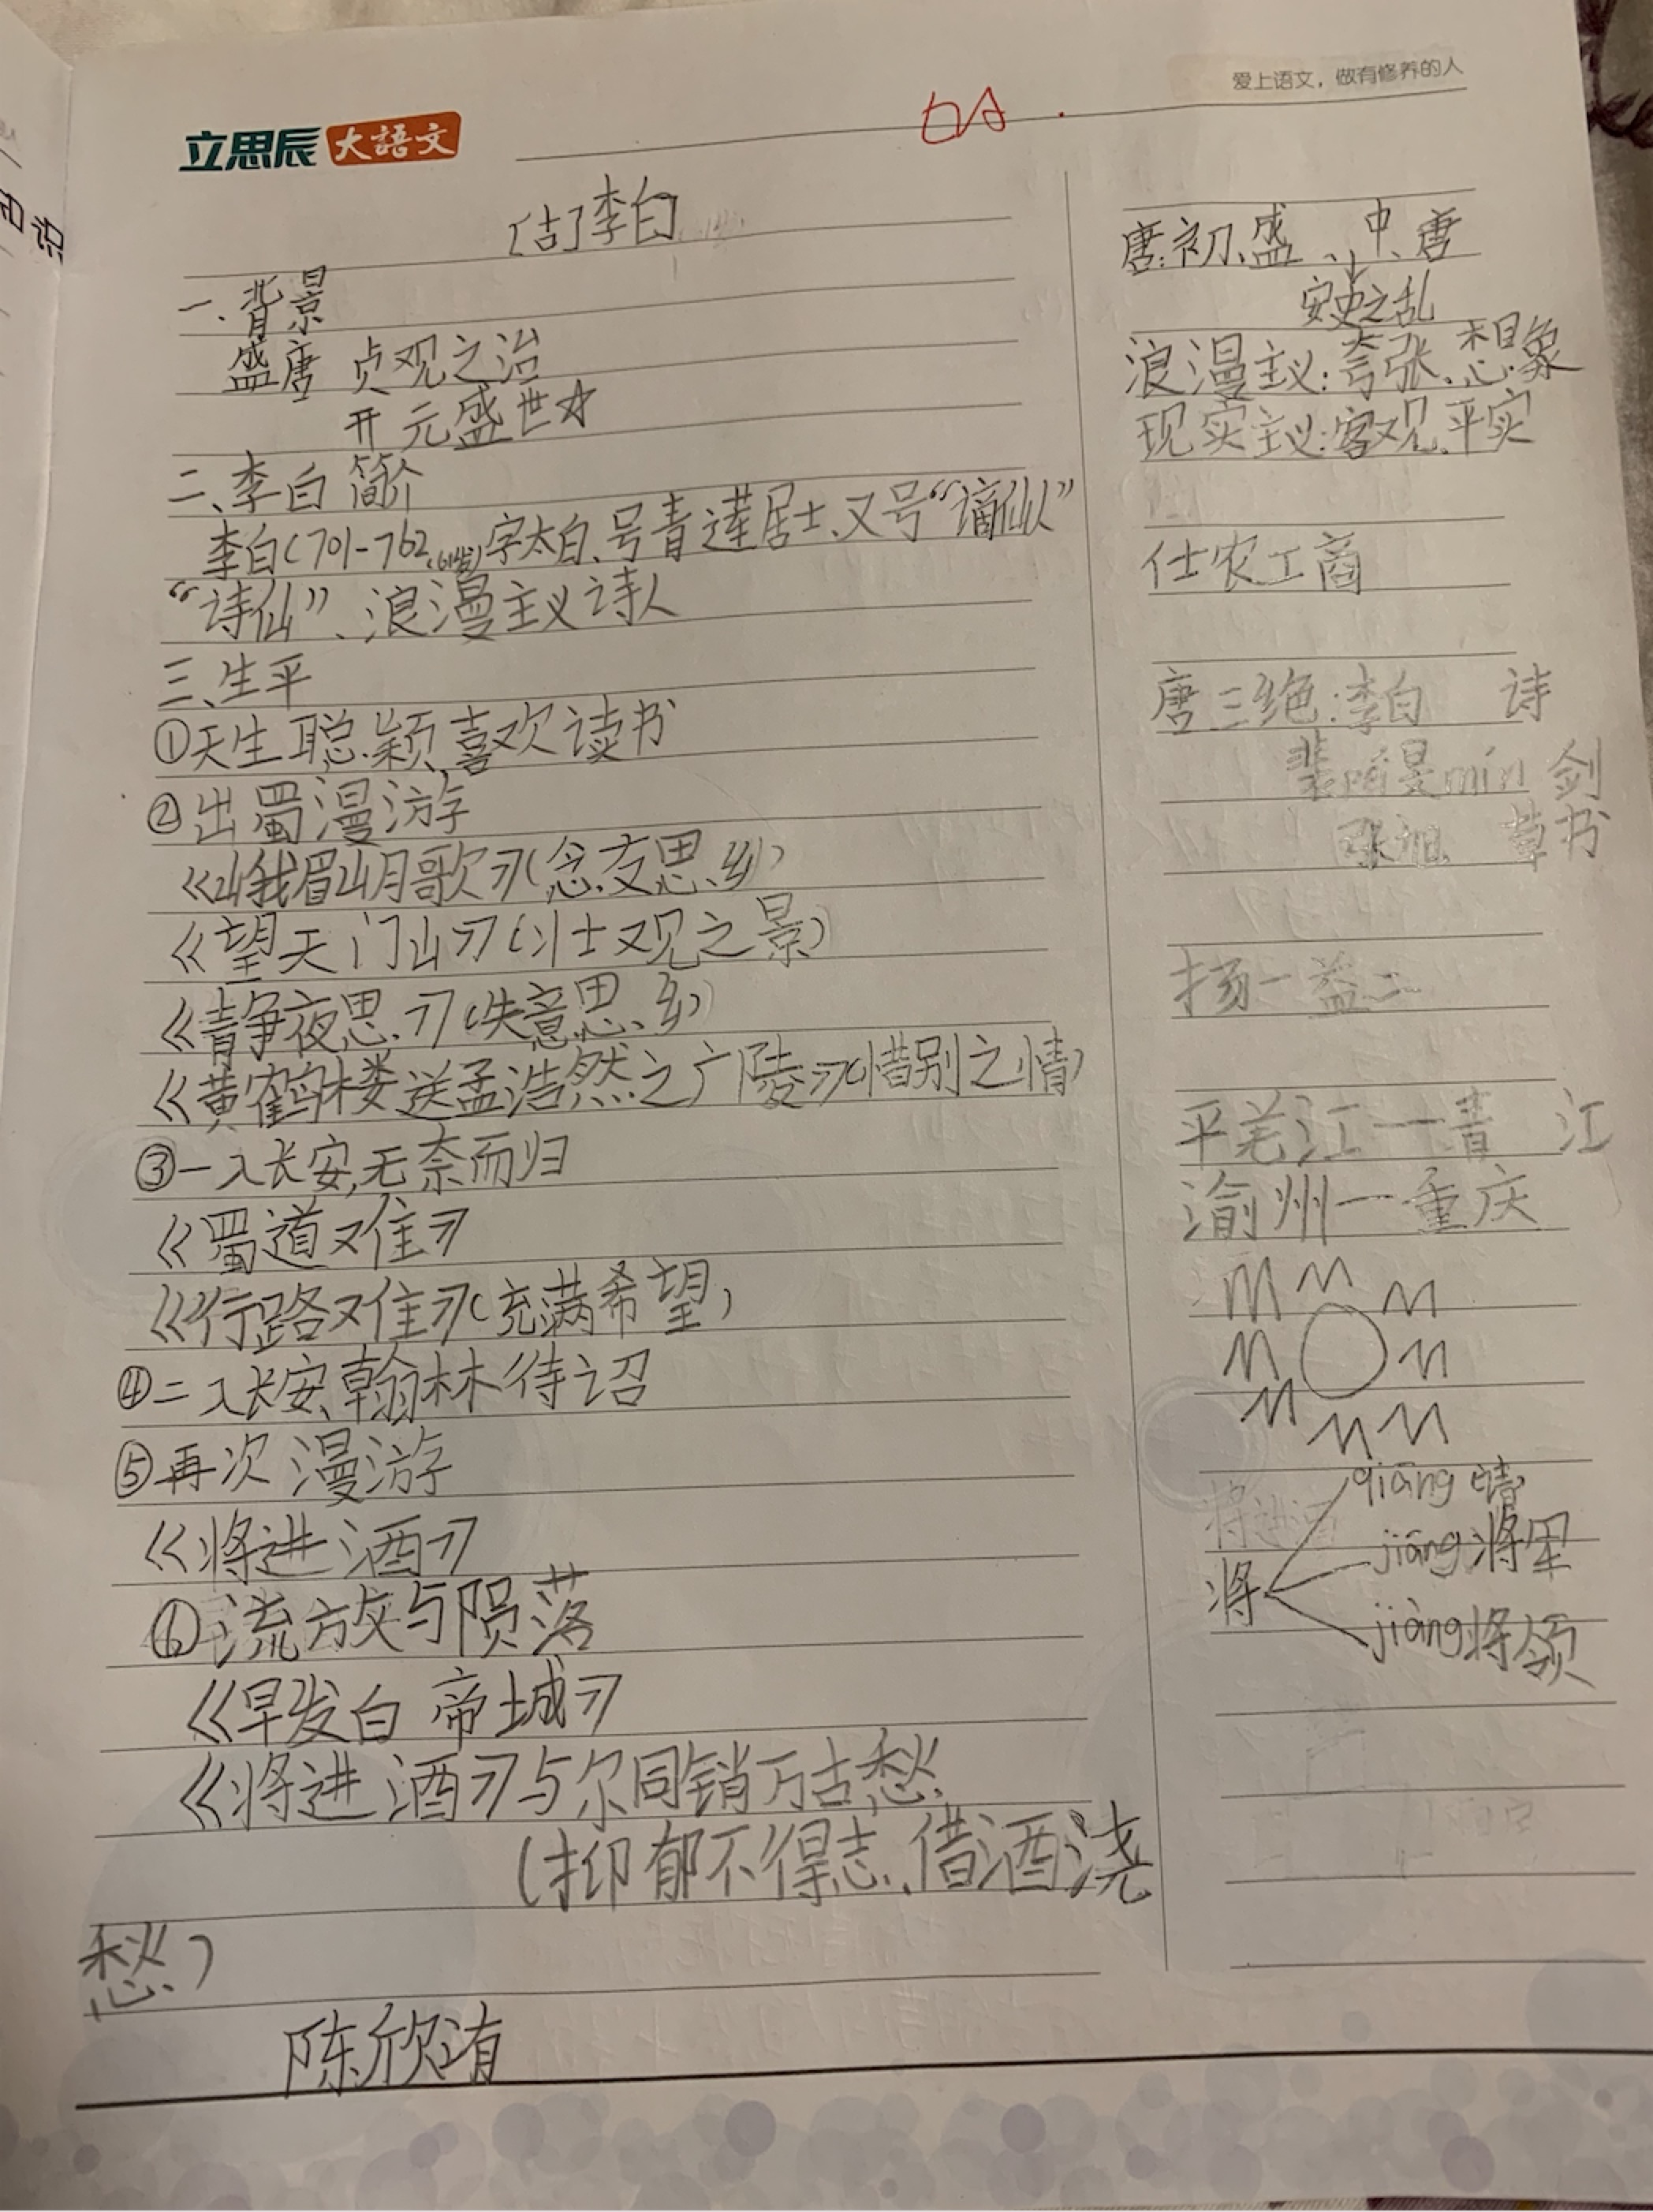 爱上语文，做有修养的人
立思辰 大語文
[古]李白
一.背景
盛唐 贞观之治
开元盛世☆
二、李白简介
李白(701-762(61岁))字太白、号青莲居士、又号“谪仙人”
“诗仙”、浪漫主义诗人
三、生平
①天生聪颖,喜欢读书
②出蜀漫游
《峨眉山月歌》(念友思乡)
《望天门山》(壮观之景)
《静夜思》(失意思乡)
《黄鹤楼送孟浩然之广陵》(惜别之情)
③一入长安,无奈而归
《蜀道难》
《行路难》(充满希望)
④二入长安、翰林待诏
⑤再次漫游
《将进酒》
⑥流放与陨落
《早发白帝城》
《将进酒》与尔同销万古愁
(抑郁不得志、借酒浇
愁)
陈欣洧
唐:初、盛、中、唐
安史之乱
浪漫主义:夸张.想象
现实主义:客观、平实
仕农工商
唐三绝:李白 诗
裴 旻min 剑
张旭 草书
扬一益二
平羌江一青 江
渝州一重庆
将进酒
qiāng 请
将 jiāng 将军
jiàng 将领